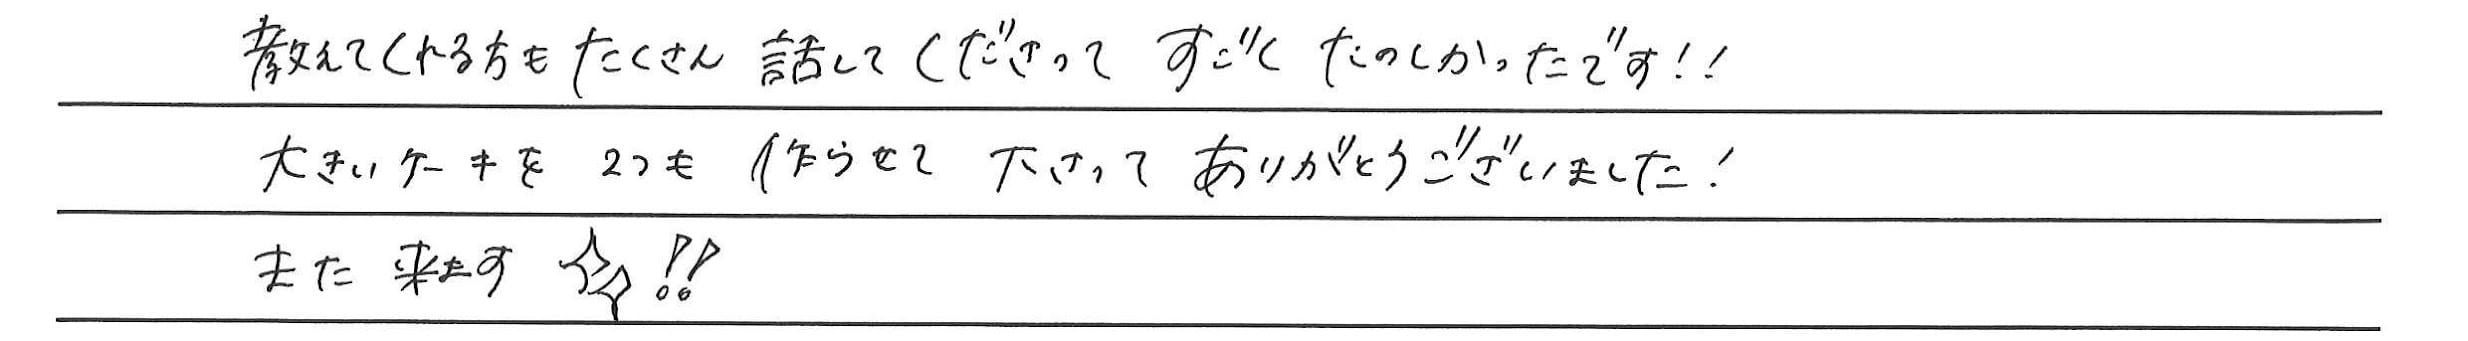 教えてくれる方もたくさん 話してくださって すごく たのしかったです!!
大きいケーキを 2つも 作らせて 下さって ありがとうございました!
また 来ます !!